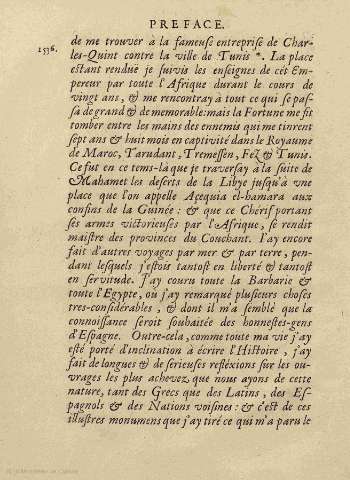 PREFACE.
1536.
de me trouver à la fameuse entreprise de Char-
les-Quint contre la ville de Tunis *. La place
estant renduë je suivis les enseignes de cét Em-
pereur par toute l'Afrique durant le cours de
vingt ans, & me rencontray à tout ce qui se pas-
sa de grand & de memorable: mais la Fortune me fit
tomber entre les mains des ennemis qui me tinrent
sept ans & huit mois en captivité dans le Royaume
de Maroc, Tarudant, Tremessen, Fez & Tunis.
Ce fut en ce tems-là que je traversay à la suite de
Mahamet les deserts de la Libye jusqu'à vne
place que l'on appelle Acequia el-hamara aux
confins de la Guinée: & que ce Chérif portant
ses armes victorieuses par l'Afrique, se rendit
maistre des provinces du Couchant. J'ay encore
fait d'autres voyages par mer & par terre, pen-
dant lesquels j'estois tantost en liberté & tantost
en servitude. J'ay couru toute la Barbarie &
toute l'Egypte, où j'ay remarqué plusieurs choses
tres-considérables, & dont il m'a semblé que la
connoissance seroit souhaitée des honnestes-gens
d'Espagne. Outre-cela, comme toute ma vie j'ay
esté porté d'inclination à écrire l'Histoire, j'ay
fait de longues & de serieuses refléxions sur les ou-
vrages les plus achevez, que nous ayons de cette
nature, tant des Grecs que des Latins, des Es-
pagnols & des Nations voisines: & c'est de ces
illustres monumens que j'ay tiré ce qui m'a paru le